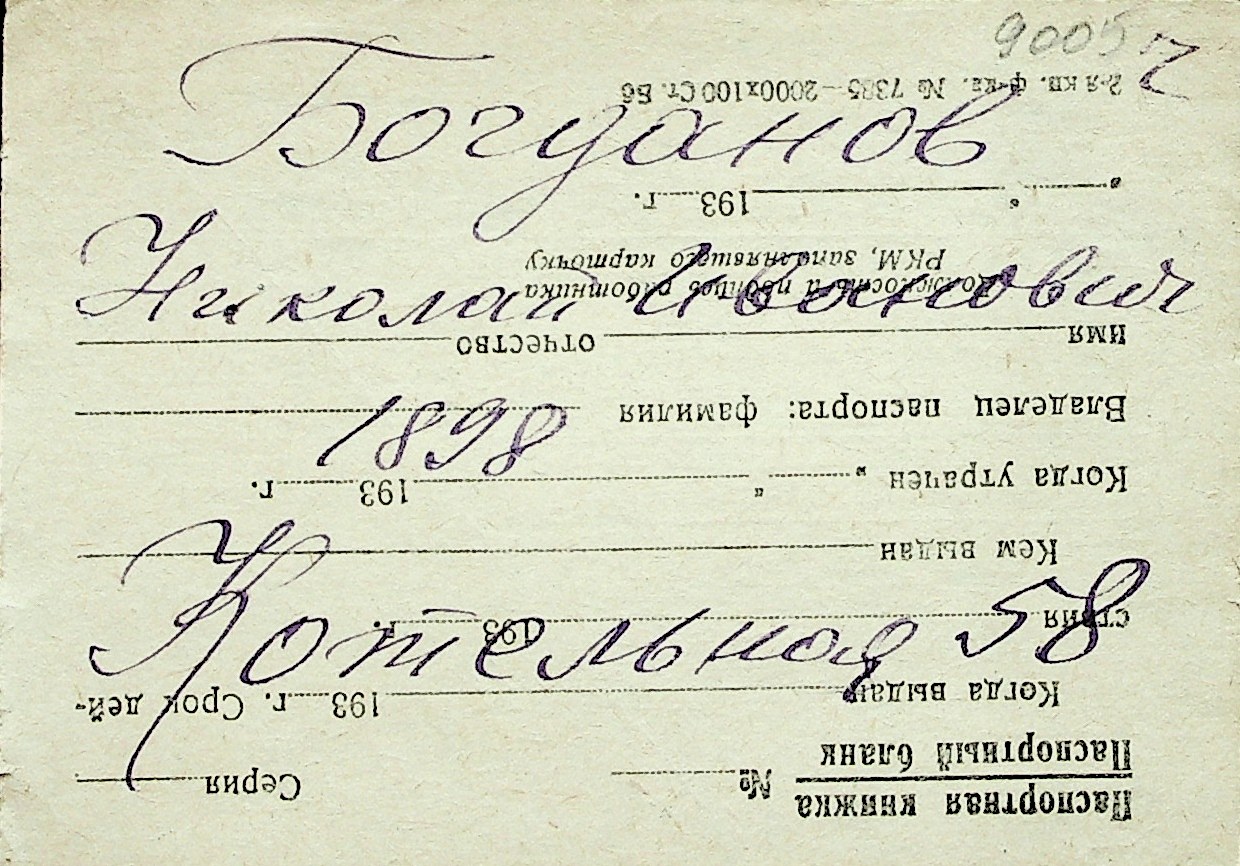 9005 ч
Богданов
Николай Иванович
1898
Котельная 58
Паспортная книжка
Паспортный бланк
№ Серия
Когда выдан 193 г. Срок дей-
ствия 193 г.
Кем выдан
Когда утрачен „ " 193 г.
Владелец паспорта: фамилия
имя отчество
Должность и подпись работника
РКМ, заполнявшего карточку
„ " 193 г.
2-я кв. ф-ка. № 7385—2000х100 Ст. Б6